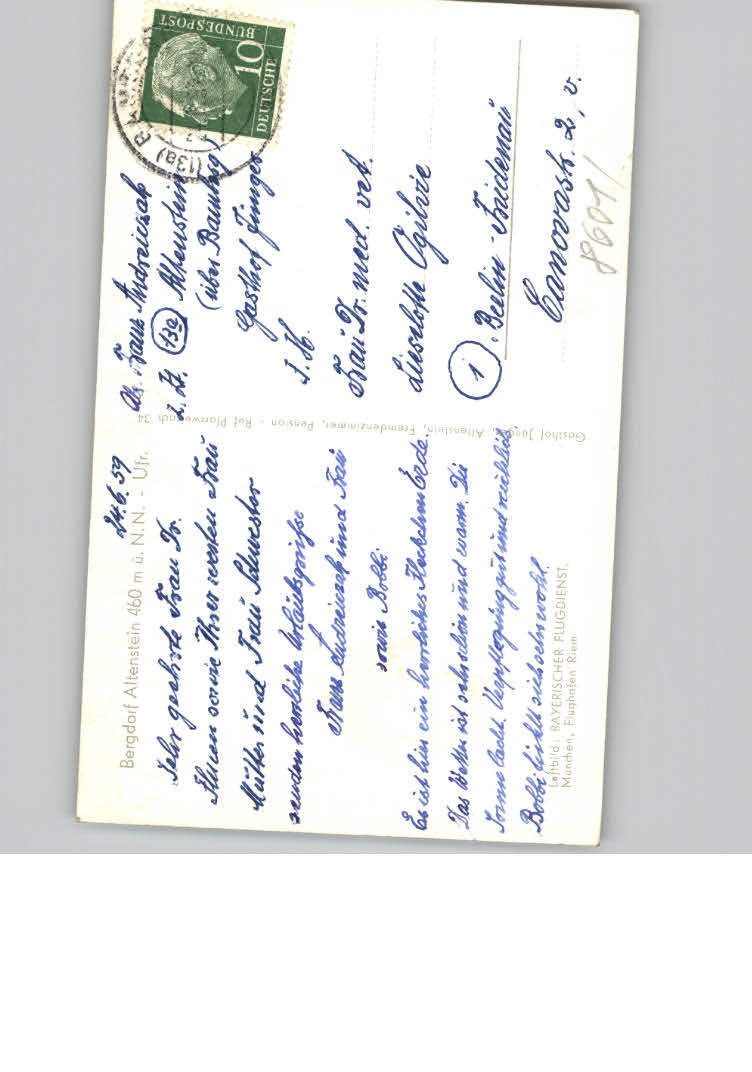 Bergdorf Altenstein 460 m ü. N.N. - Ufr.
24.6.59
Sehr geehrte Frau Dr.
Ihnen sowie Ihrer werten Frau
Mutter und Frau Schwester
senden herzliche Urlaubsgrüße
Hans Andreiczak und Frau
sowie Bobbi.
Es ist hier ein herrliches Fleckchen Erde.
Das Wetter ist sehr schön und warm. Die
Sonne lacht. Verpflegung gut und reichlich
Bobbi fühlt sich sehr wohl.
Luftbild: BAYERISCHER FLUGDIENST,
München, Flughafen Riem
Gasthof Junger, Altenstein, Fremdenzimmer, Pension - Ruf Pfarrweisach 34
DEUTSCHE
BUNDESPOST
10
(13a)
Abs. Hans Andreiczak
z. Zt. (13a) Altenstein
(über Baunach)
Gasthof Junger
Frau Dr. med. vet.
Lieselotte Ogilvie
(1) Berlin-Friedenau
Canovastr. 2, v.
8601/